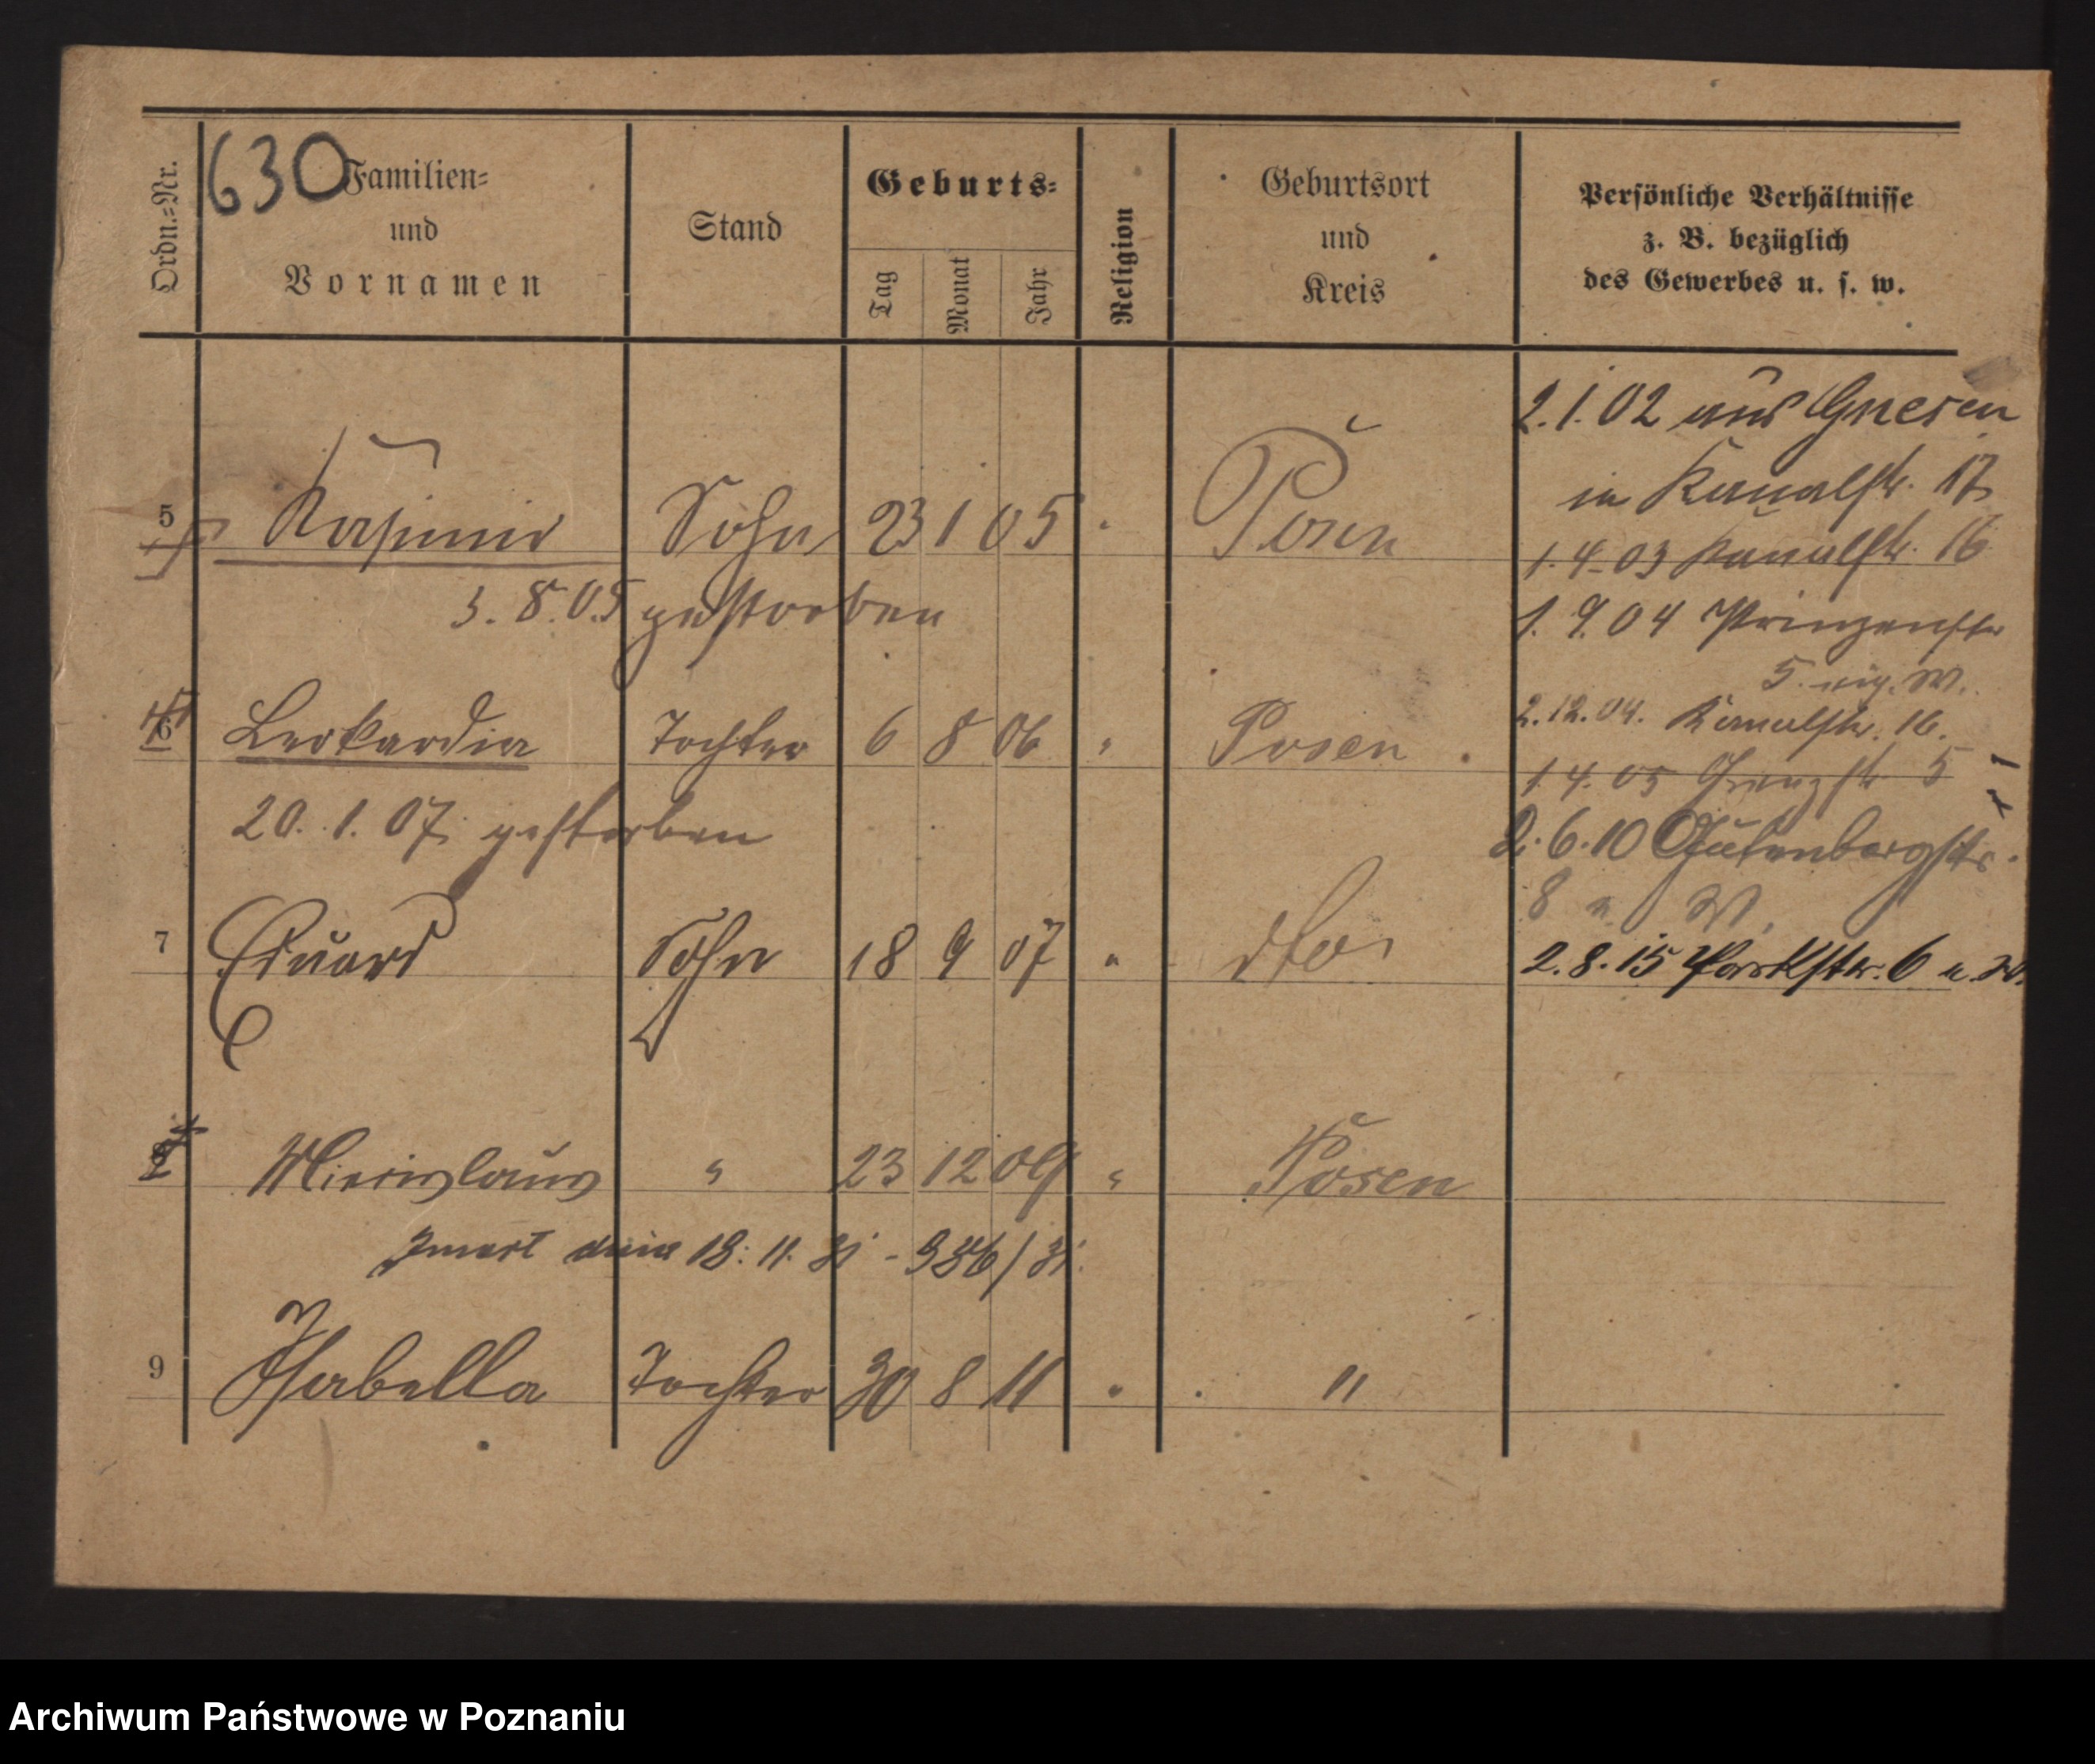 630
Ordn.-Nr.
Familien-
und
Vornamen
Stand
Geburts-
Tag
Monat
Jahr
Religion
Geburtsort
und
Kreis
Persönliche Verhältnisse
z. B. bezüglich
des Gewerbes u. s. w.
2.1.02 aus Gnesen
in Kanalstr. 17
5 Kasimir Sohn 23 1 05 " Posen
1.4.03 Kanalstr. 16
3.8.05 gestorben
1.9.04 Prinzenstr
5. W.
2.12.04. Kanalstr. 16.
6 Leokardia Tochter 6 8 06 " Posen
1.4.05 Grenzstr 5
20.1.07. gestorben
2.6.10 Gutenbergstr.
8 W.
7 Eduard Sohn 18 9 07 " dto.
2.8.15 Parkstr. 6 u. W.
8 Miecislaus " 23 12 09 " Posen
Zmarł dnia 18. 11. 31 - 936/31.
9 Isabella Tochter 30 8 11 " "
Archiwum Państwowe w Poznaniu